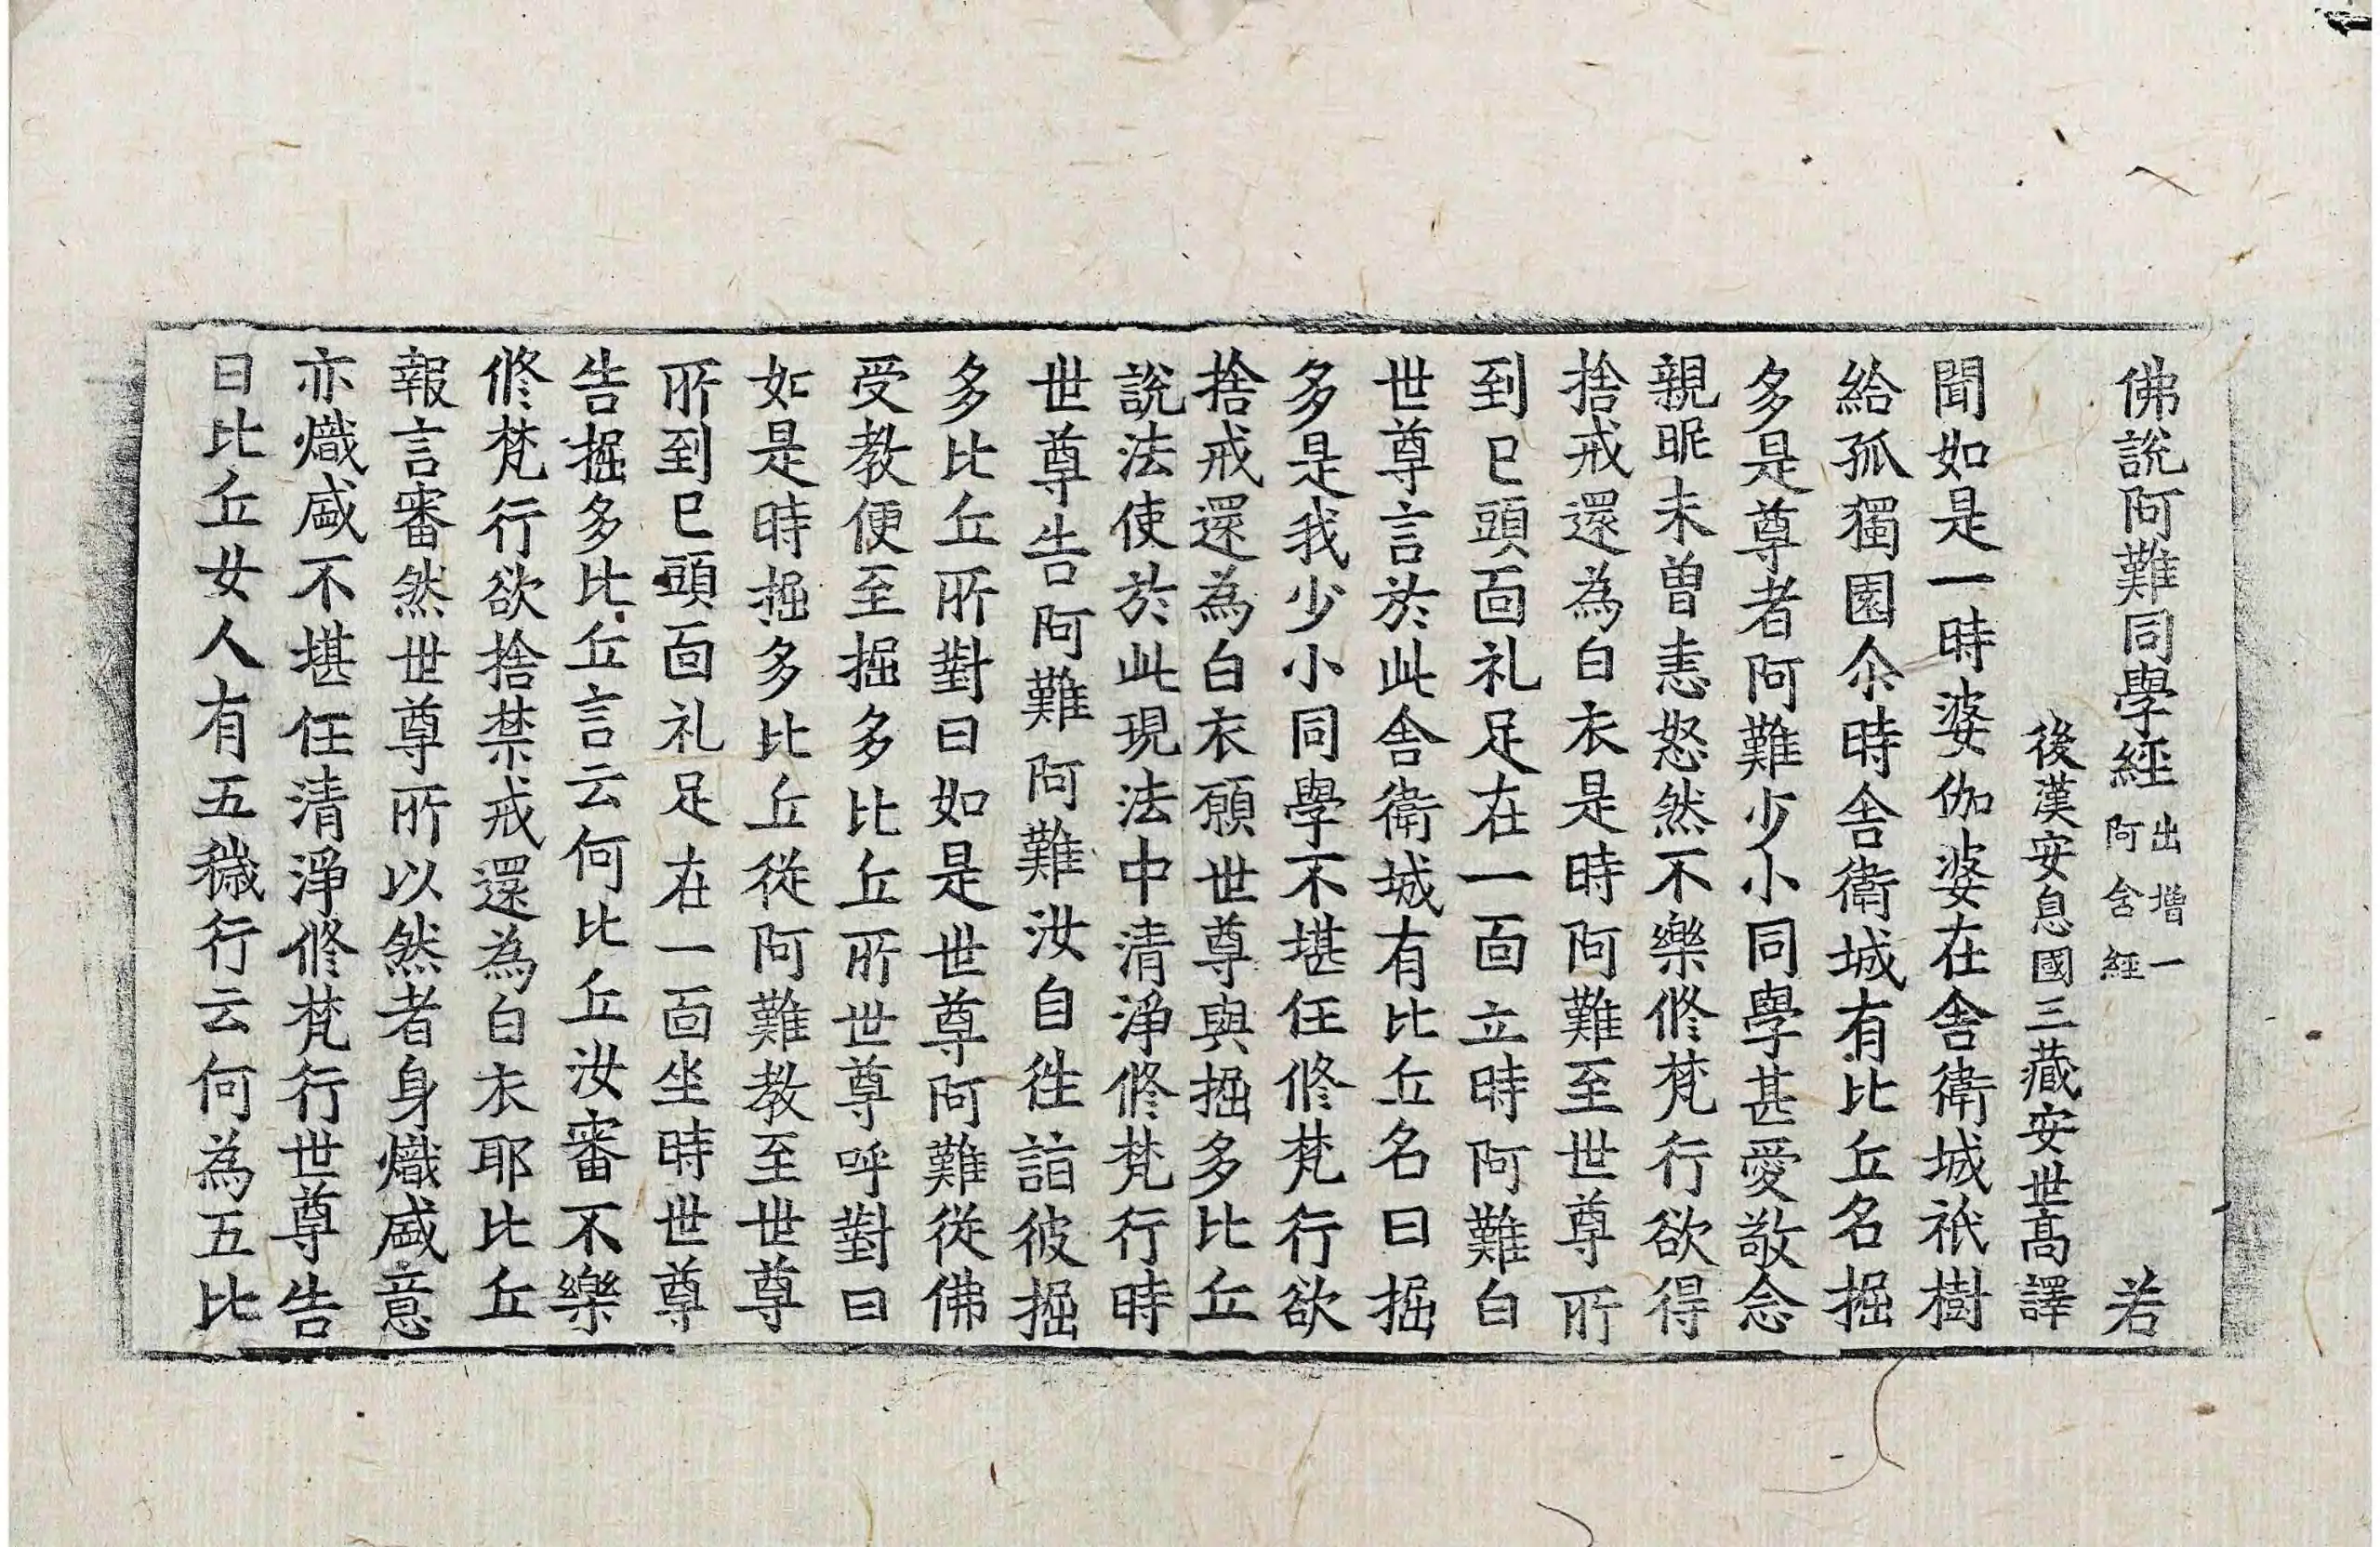 佛說阿難同學經 出增一阿含經 若
後漢安息國三藏安世高譯
聞如是一時婆伽婆在舍衛城祇樹
給孤獨園尒時舍衛城有比丘名掘
多是尊者阿難少小同學甚愛敬念
親昵未曾恚怒然不樂修梵行欲得
捨戒還為白衣是時阿難至世尊所
到已頭面礼足在一面立時阿難白
世尊言於此舍衛城有比丘名曰掘
多是我少小同學不堪任修梵行欲
捨戒還為白衣願世尊與掘多比丘
說法使於此現法中清淨修梵行時
世尊告阿難阿難汝自往詣彼掘
多比丘所對曰如是世尊阿難從佛
受教便至掘多比丘所世尊呼對曰
如是時掘多比丘從阿難教至世尊
所到已頭面礼足在一面坐時世尊
告掘多比丘言云何比丘汝審不樂
修梵行欲捨禁戒還為白衣耶比丘
報言審然世尊所以然者身熾盛意
亦熾盛不堪任清淨修梵行世尊告
曰比丘女人有五穢行云何為五比